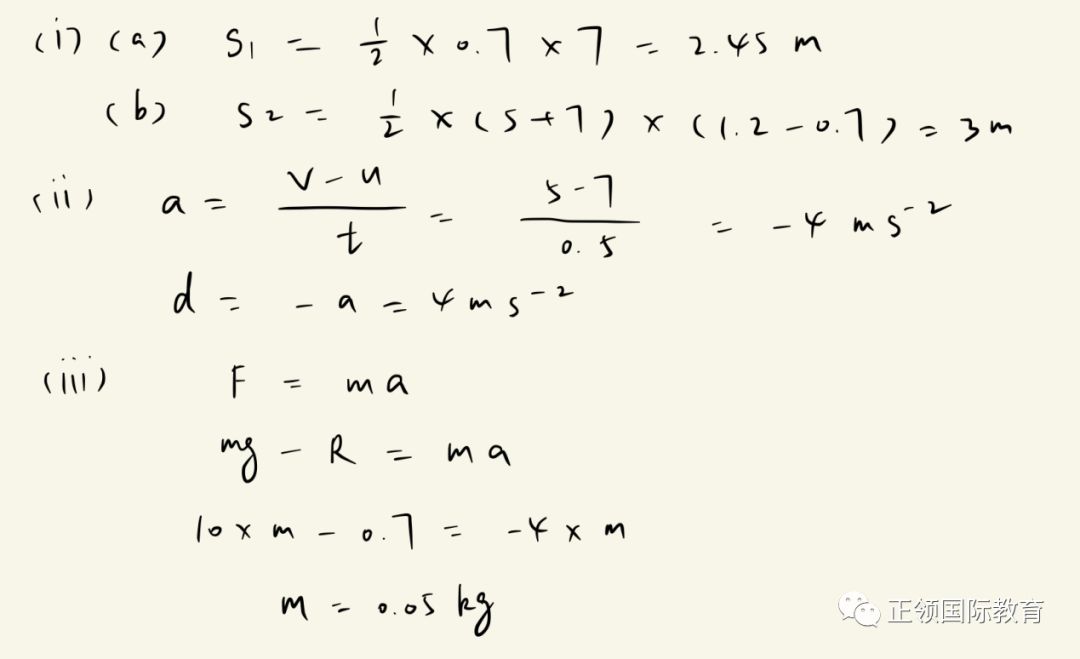 (i) (a) S₁ = 1/2 × 0.7 × 7 = 2.45 m
(b) S₂ = 1/2 × (5+7) × (1.2 - 0.7) = 3m
(ii) a = (v - u)/t = (5 - 7)/0.5 = -4 ms⁻²
d = - a = 4 ms⁻²
(iii) F = ma
mg - R = ma
10 × m - 0.7 = -4 × m
m = 0.05 kg
正领国际教育